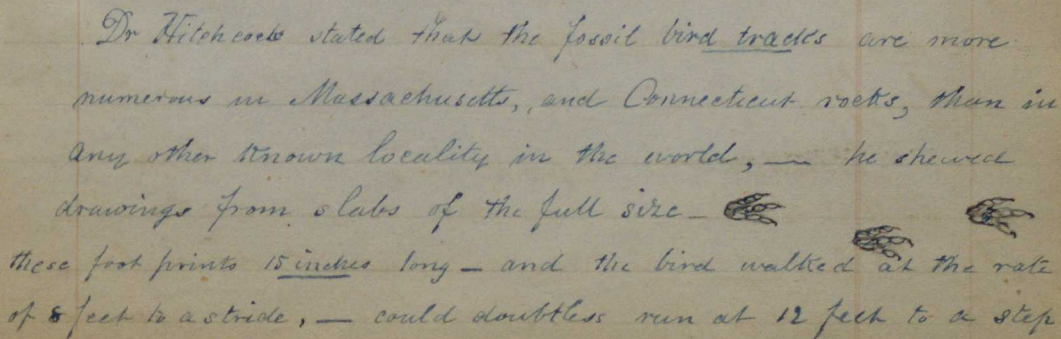 Dr Hitchcock stated that the fossil bird tracks are more
numerous in Massachusetts, and Connecticut rocks, than in
any other known locality in the world, — he shewed
drawings from slabs of the full size —
these foot prints 15 inches long — and the bird walked at the rate
of 8 feet to a stride, — could doubtless run at 12 feet to a step